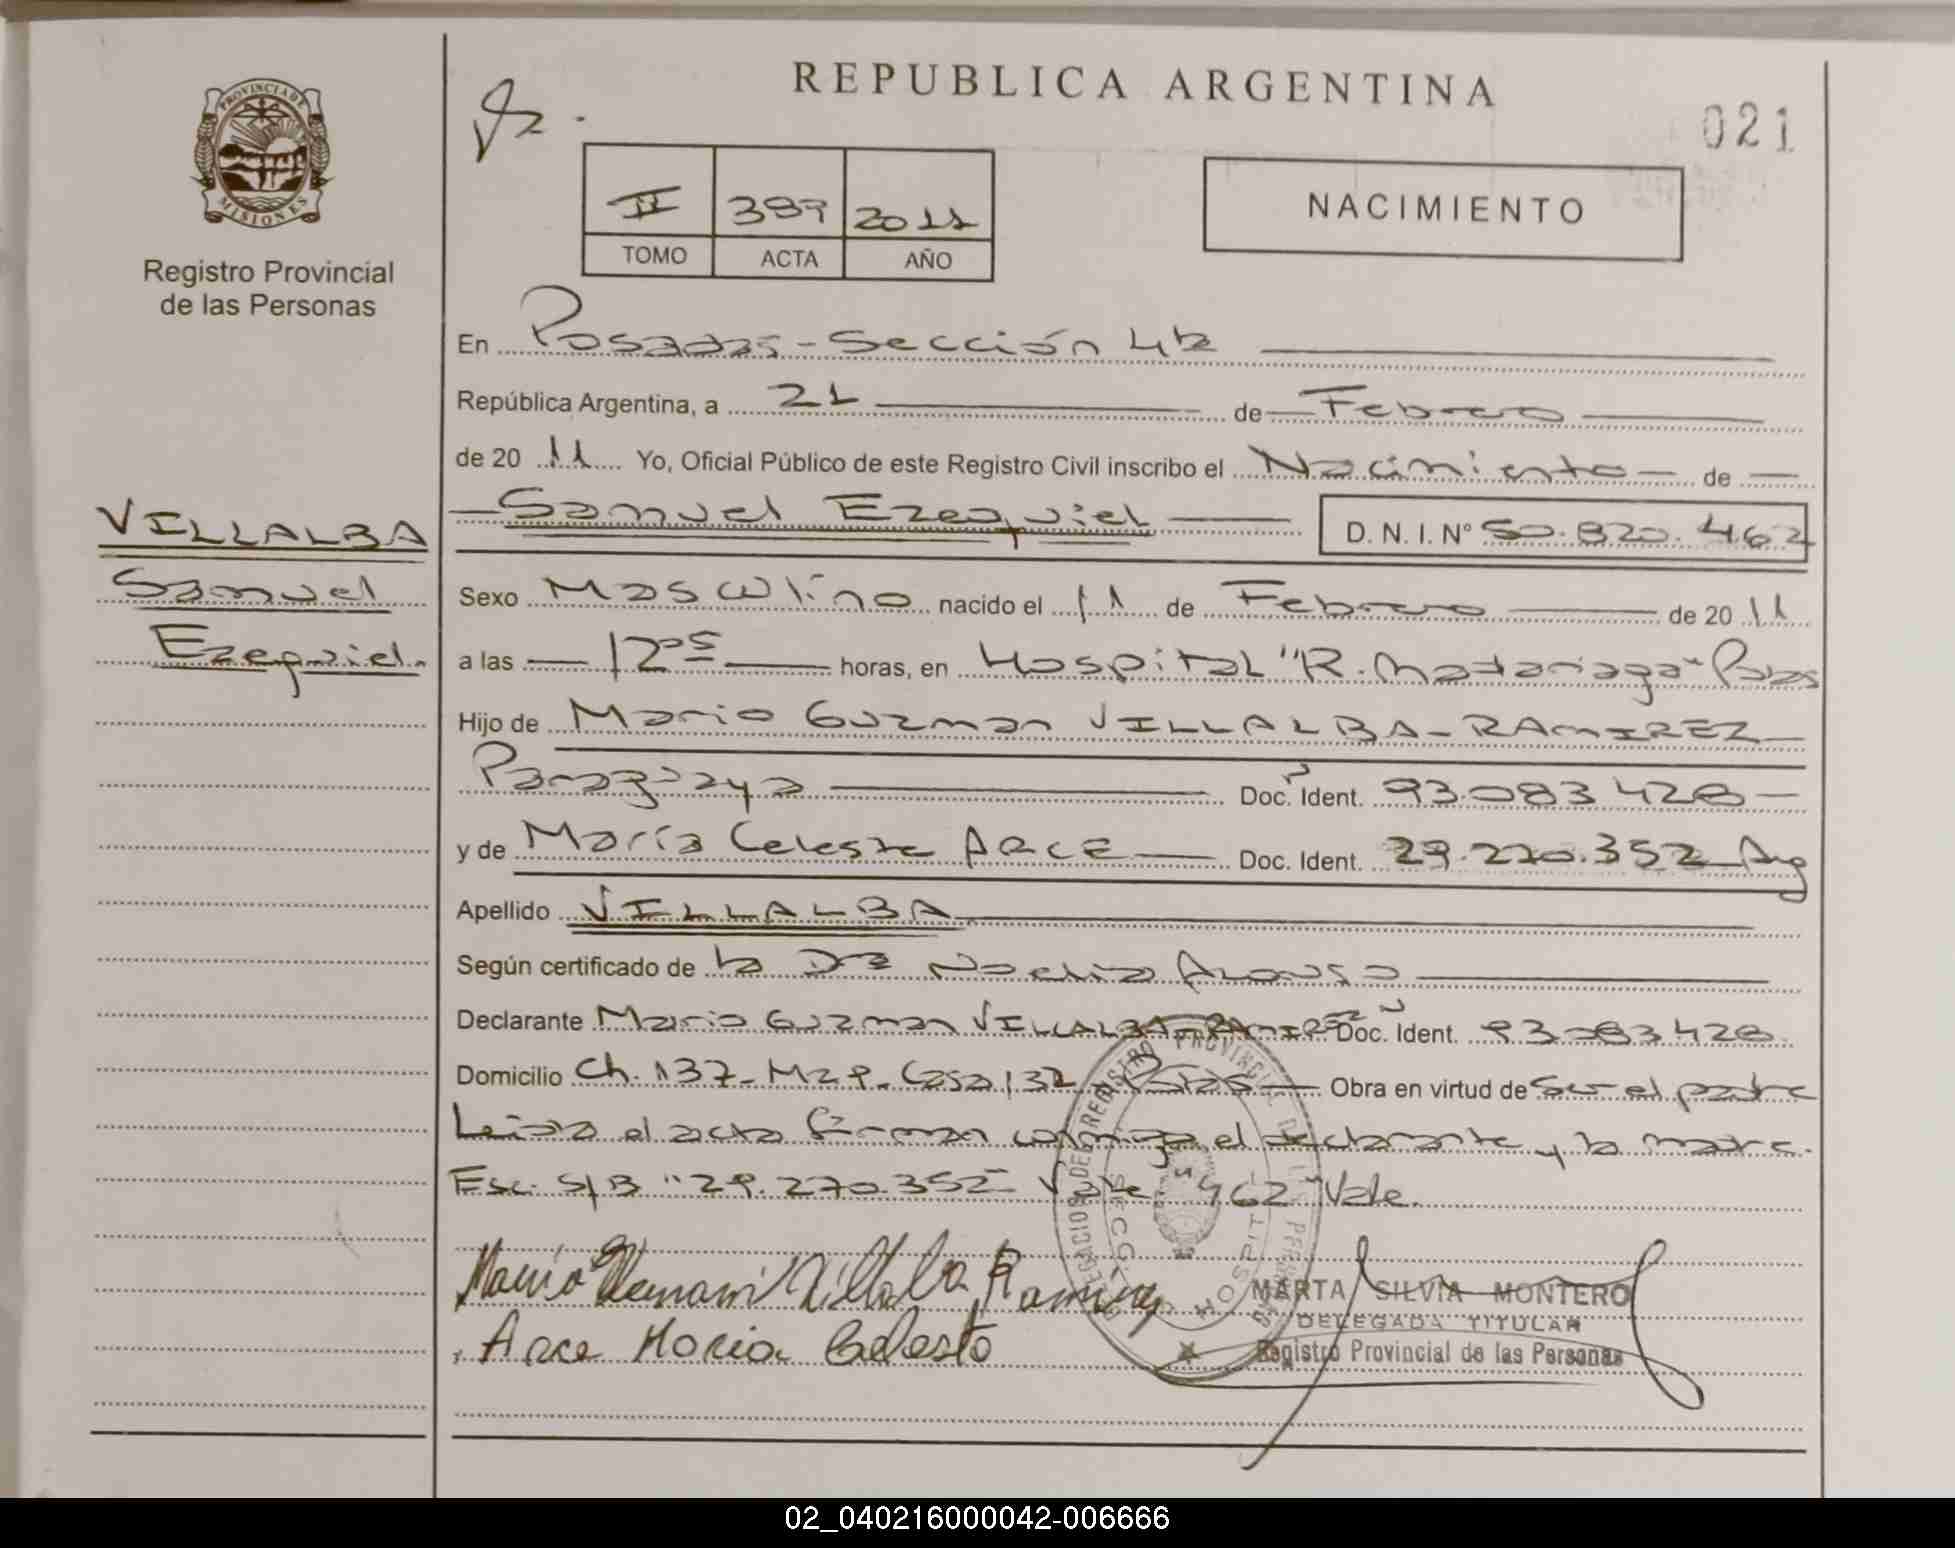 REPUBLICA ARGENTINA
021
PROVINCIA DE MISIONES
Registro Provincial
de las Personas
II 397 2011
TOMO ACTA AÑO
NACIMIENTO
En Posadas - Sección 4ta
República Argentina, a 21 de Febrero
de 20 11 Yo, Oficial Público de este Registro Civil inscribo el Nacimiento de
Samuel Ezequiel D. N. I. Nº 50.820.462
VILLALBA
Samuel
Ezequiel.
Sexo Masculino nacido el 11 de Febrero de 20 11
a las 12 05 horas, en Hospital "R. Madariaga" Pdas
Hijo de Mario Guzman VILLALBA - RAMIREZ
Paraguaya Doc. Ident. 93.083428
y de María Celeste ARCE Doc. Ident. 29.270.352 Arg
Apellido VILLALBA
Según certificado de la Dra Noelia Alonso
Declarante Mario Guzman VILLALBA - RAMIREZ Doc. Ident. 93083428
Domicilio Ch. 137 - Mz P. Casa 132 Pdas Obra en virtud de Ser el padre
Leida el acta firman conmigo el declarante y la madre.
Esc. S/B "29.270.352" Vale "462" Vale.
Mario Villalba Ramirez
Arce Maria Celeste
MARTA SILVIA MONTERO
DELEGADA TITULAR
Registro Provincial de las Personas
02_040216000042-006666